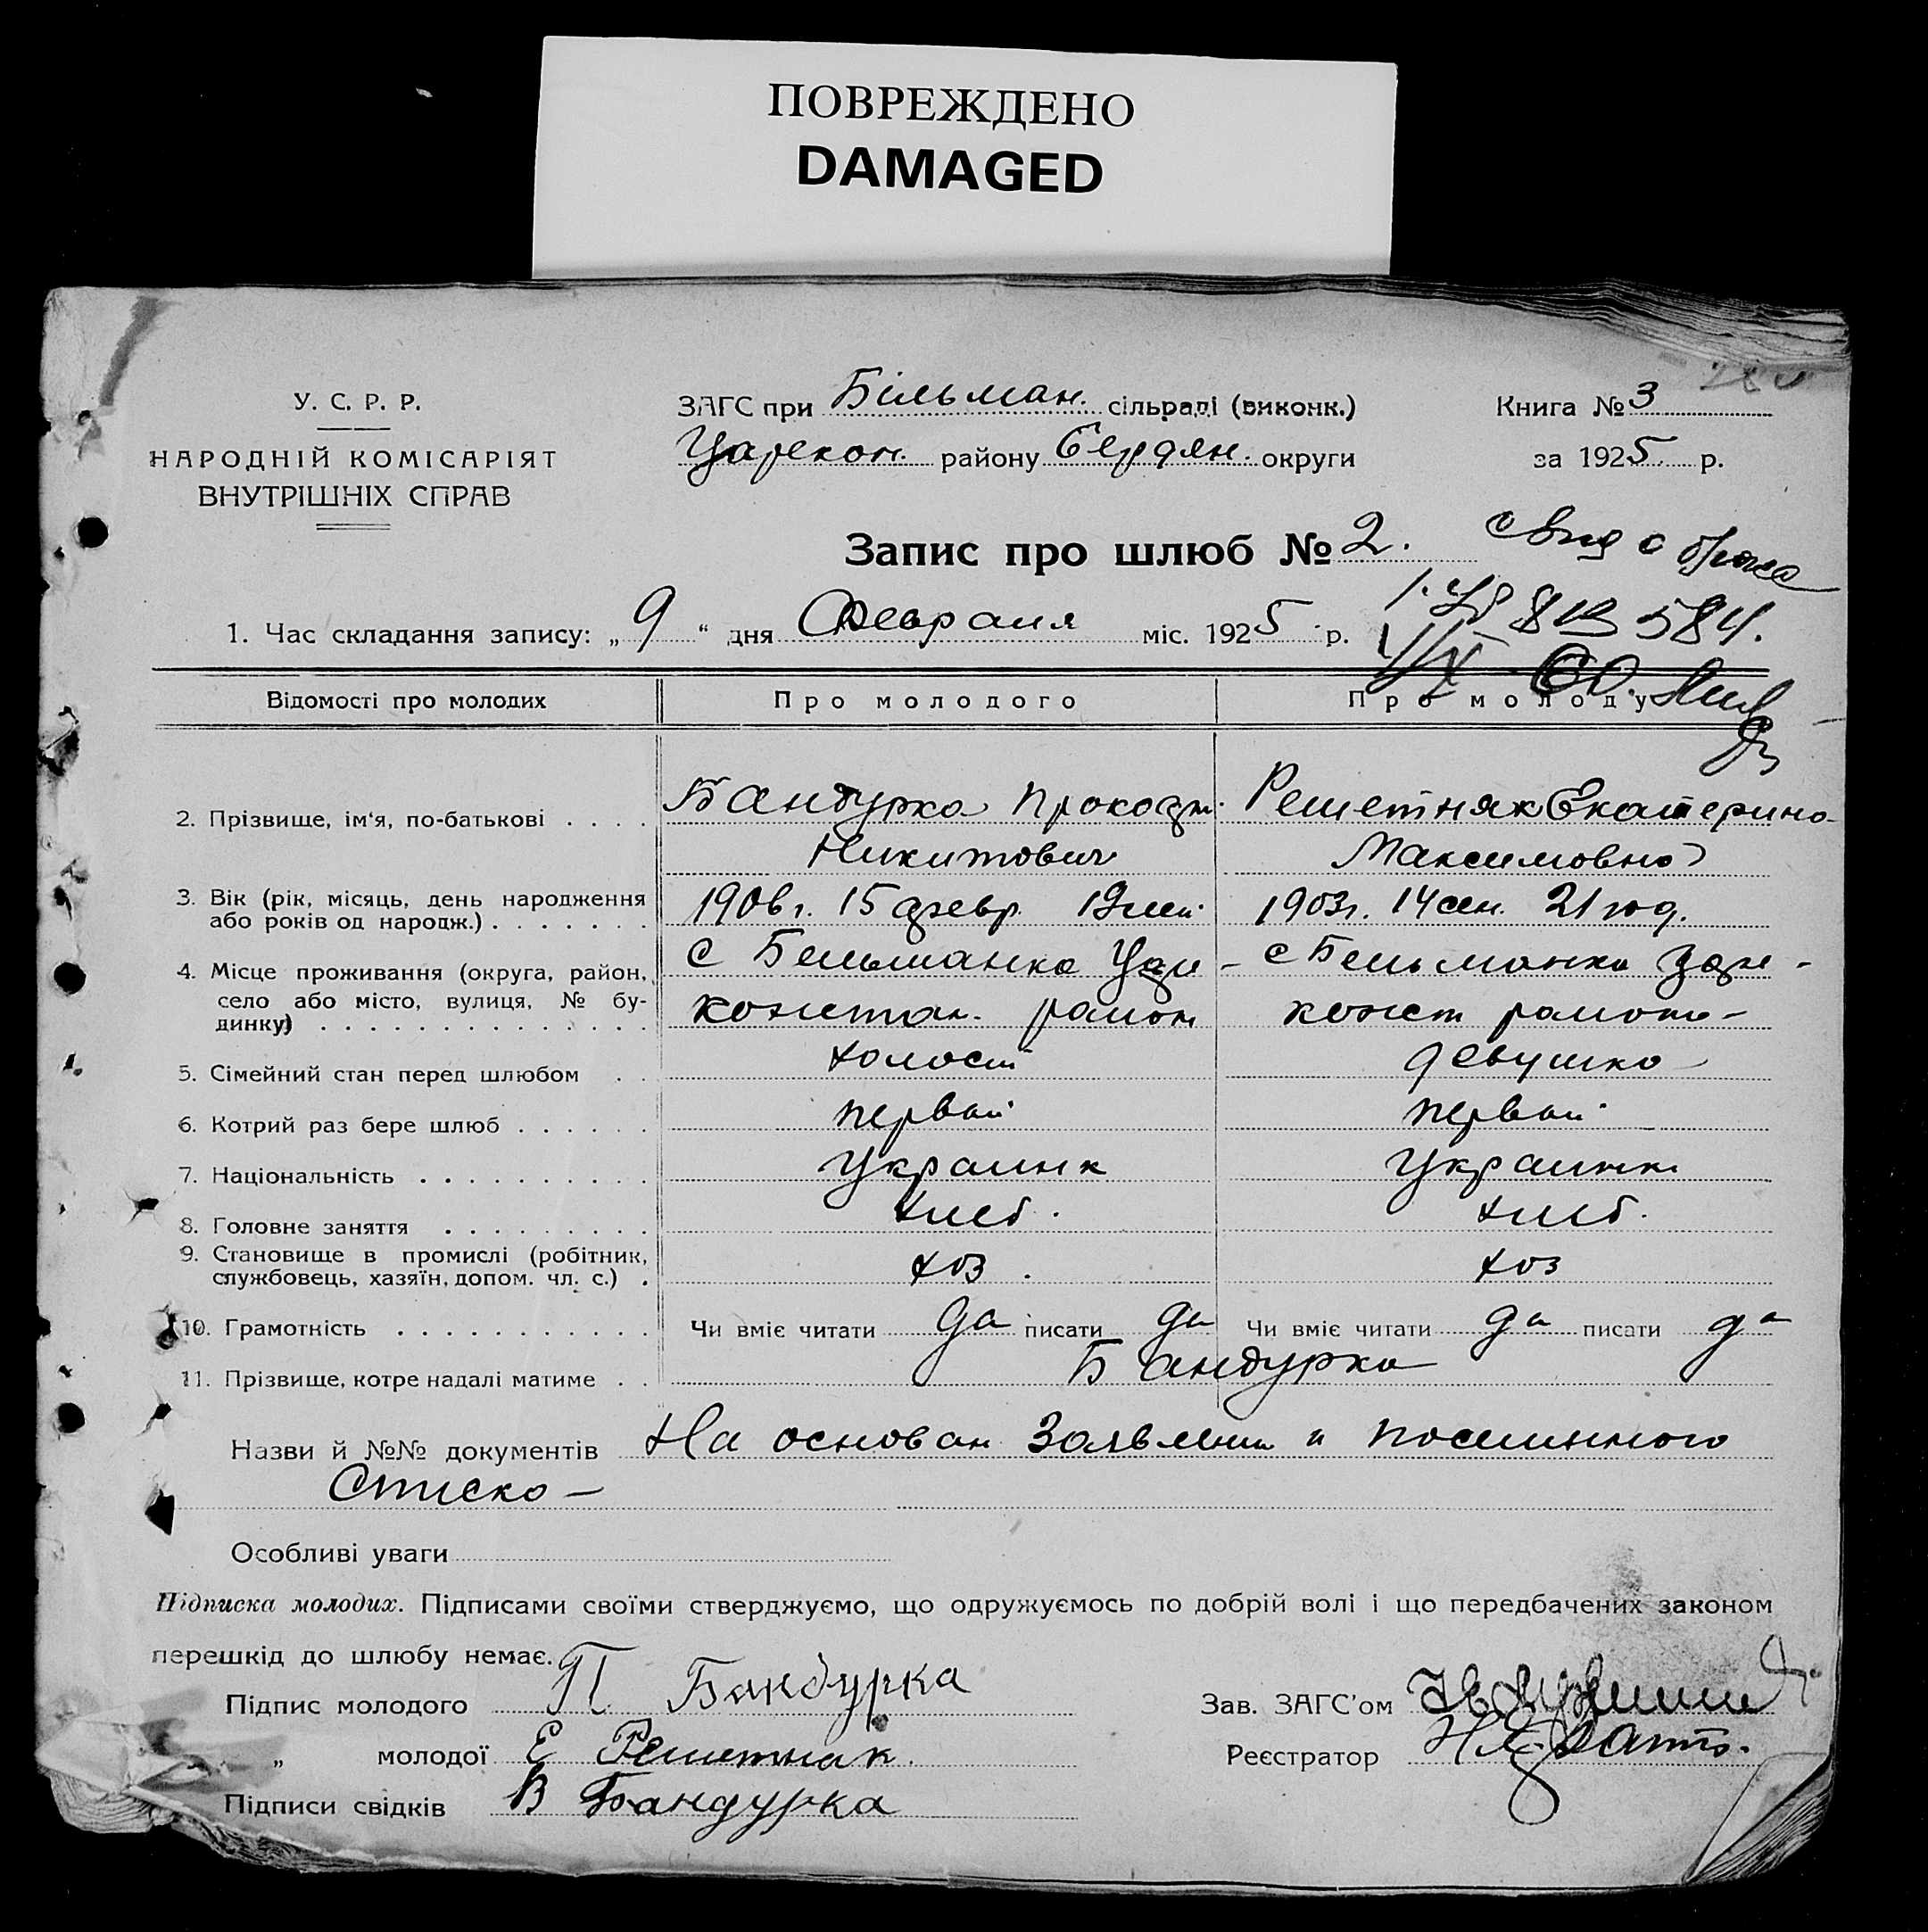 ПОВРЕЖДЕНО
DAMAGED
У. С. Р. Р.
НАРОДНІЙ КОМІСАРІЯТ
ВНУТРІШНІХ СПРАВ
ЗАГС при Більман. сільраді (виконк.)
Царекон. району Бердян. округи
Книга № 3
за 1925 р.
Запис про шлюб № 2.
о браке
584.
1. Час складання запису: „ 9 “ дня Февраля міс. 1925 р.
Відомості про молодих Про молодого Про молоду
2. Прізвище, ім'я, по-батькові . . . . Бандурка Прокофи. Решетняк Екатерина
Никитович Максимовна
3. Вік (рік, місяць, день народження 1906 г. 15 февр. 19 лет 1903 г. 14 сен. 21 год.
або років од народж.) . . . . . . .
4. Місце проживання (округа, район, с Бельманка Царе- с Бельманка Царе-
село або місто, вулиця, № бу-
динку) . . . . . . . . . . . . . . констан. район конст района
5. Сімейний стан перед шлюбом . . холост девушка
6. Котрий раз бере шлюб . . . . . . первый первый
7. Національність . . . . . . . . . . Украинк Украинк
8. Головне заняття . . . . . . . . . хлеб. хлеб.
9. Становище в промислі (робітник,
службовець, хазяїн, допом. чл. с.) . хоз. хоз
10. Грамотність . . . . . . . . . . . Чи вміє читати да писати да Чи вміє читати да писати да
11. Прізвище, котре надалі матиме . . Бандурка
Назви й №№ документів На основан Заявлении и посемйнного
Списка –
Особливі уваги
Підписка молодих. Підписами своїми стверджуємо, що одружуємось по добрій волі і що передбачених законом
перешкід до шлюбу немає.
Підпис молодого П Бандурка Зав. ЗАГС'ом
„ молодої Е Решетняк. Реєстратор
Підписи свідків В Бандурка